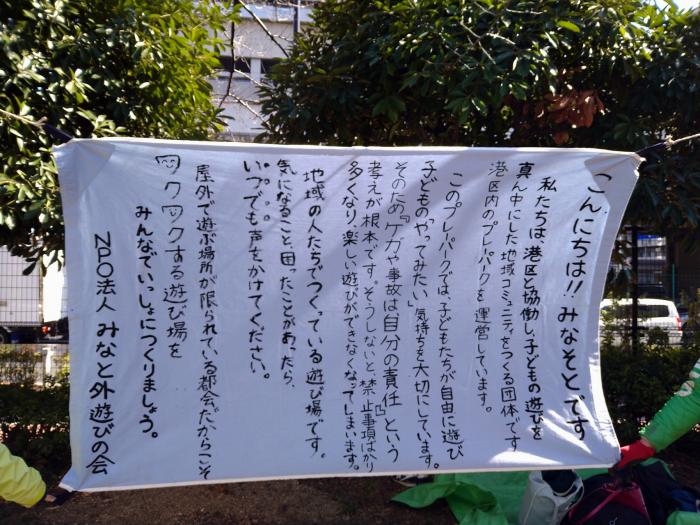 こんにちは!! みなそとです
私たちは港区と協働し、子どもの遊びを
真ん中にした地域コミュニティをつくる団体です
港区内のプレーパークを運営しています。
このプレーパークでは、子どもたちが自由に遊び
子どものやってみたい気持ちを大切にしています。
そのため『ケガや事故は自分の責任』という
考えが根本です。そうしないと、禁止事項ばかり
多くなり、楽しい遊びができなくなってしまいます。
地域の人たちでつくっている遊び場です。
気になること、困ったことがあったら、
いつでも声をかけてください。
屋外で遊ぶ場所が限られている都会だからこそ
ワクワクする遊び場を
みんなでいっしょにつくりましょう。
NPO法人 みなと外遊びの会